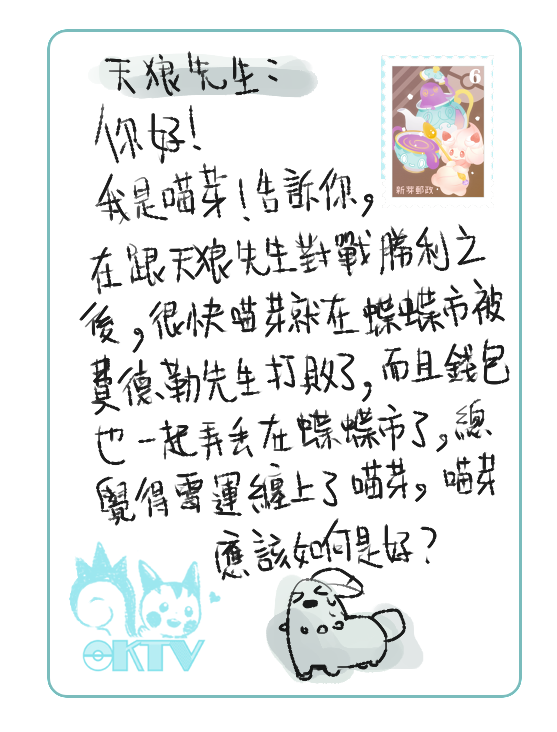 天狼先生：
6
新芽郵政
你好！
我是喵芽！告訴你，
在跟天狼先生對戰勝利之
後，很快喵芽就在蝶蝶市被
費德勒先生打敗了，而且錢包
也一起弄丟在蝶蝶市了，總
覺得雷運纏上了喵芽，喵芽
應該如何是好？
OKTV